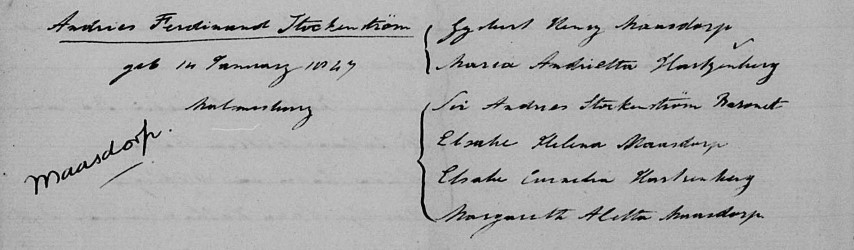 Andries Ferdinand Stockenström
geb 14 January 1847
Malmesburg
Maasdorp.
Gysbert Henry Maasdorp
Maria Andrietta Hartzenberg
Sir Andries Stockenström Baronet
Elsabe Helena Maasdorp
Elsabe Cornelia Hartzenberg
Margareth Aletta Maasdorp